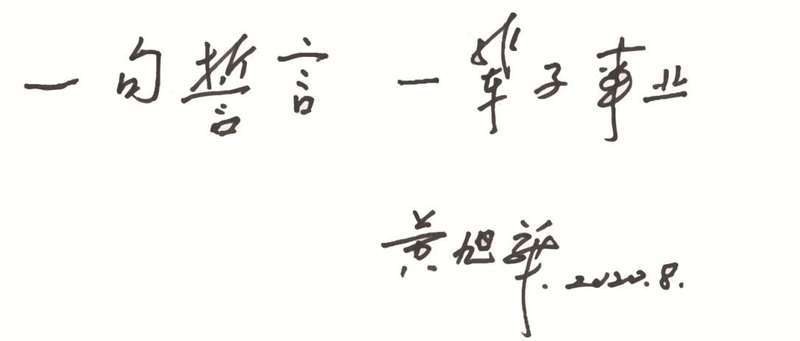 一句誓言 一辈子事业
黄旭华. 2020.8.